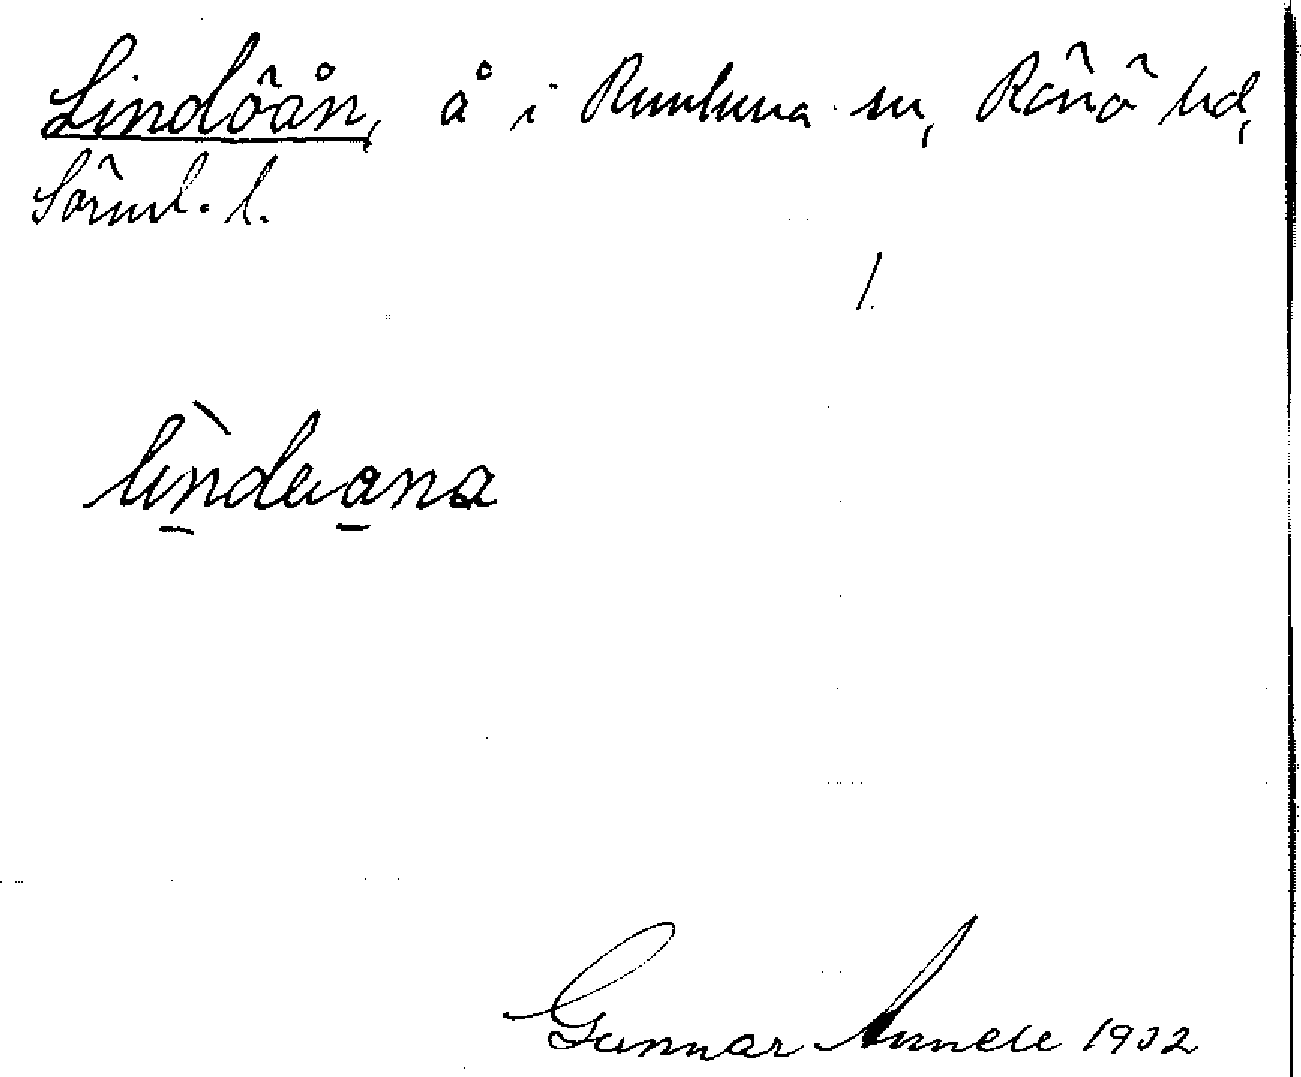 Lindöån, å i Runtuna sn, Rönö hd,
Söderml. l.
1.
Gunnar Annell 1932